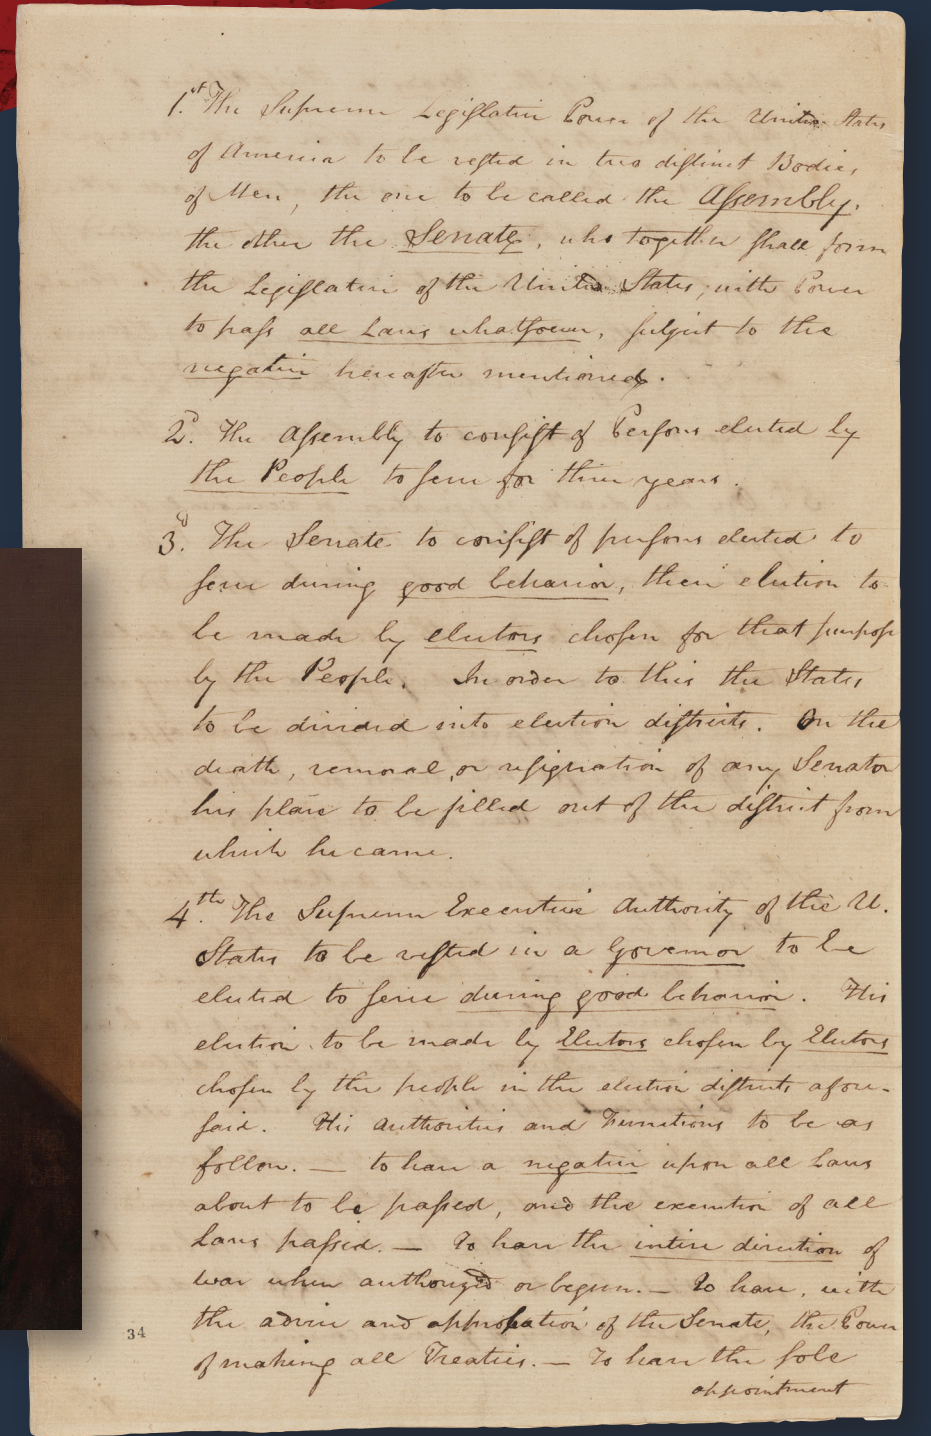 1.st The Supreme Legislative Power of the United States
of America to be vested in two distinct Bodies
of Men, the one to be called the Assembly,
the other the Senate, who together shall form
the Legislature of the United States, with Power
to pass all Laws whatsoever, subject to the
negative hereafter mentioned.
2d. The Assembly to consist of Persons elected by
the People to serve for three years.
3d. The Senate to consist of persons elected to
serve during good behavior, their election to
be made by electors chosen for that purpose
by the People. In order to this the States
to be divided into election districts. On the
death, removal, or resignation of any Senator
his place to be filled out of the district from
which he came.
4th. The Supreme Executive Authority of the U.
States to be vested in a Governor to be
elected to serve during good behavior. His
election to be made by Electors chosen by Electors
chosen by the people in the election districts afore-
said. His Authorities and Functions to be as
follow. — to have a negative upon all Laws
about to be passed, and the execution of all
Laws passed. — To have the intire direction of
war when authorized or begun. — To have, with
the advice and approbation of the Senate, the Power
of making all Treaties. — To have the sole
appointment
34